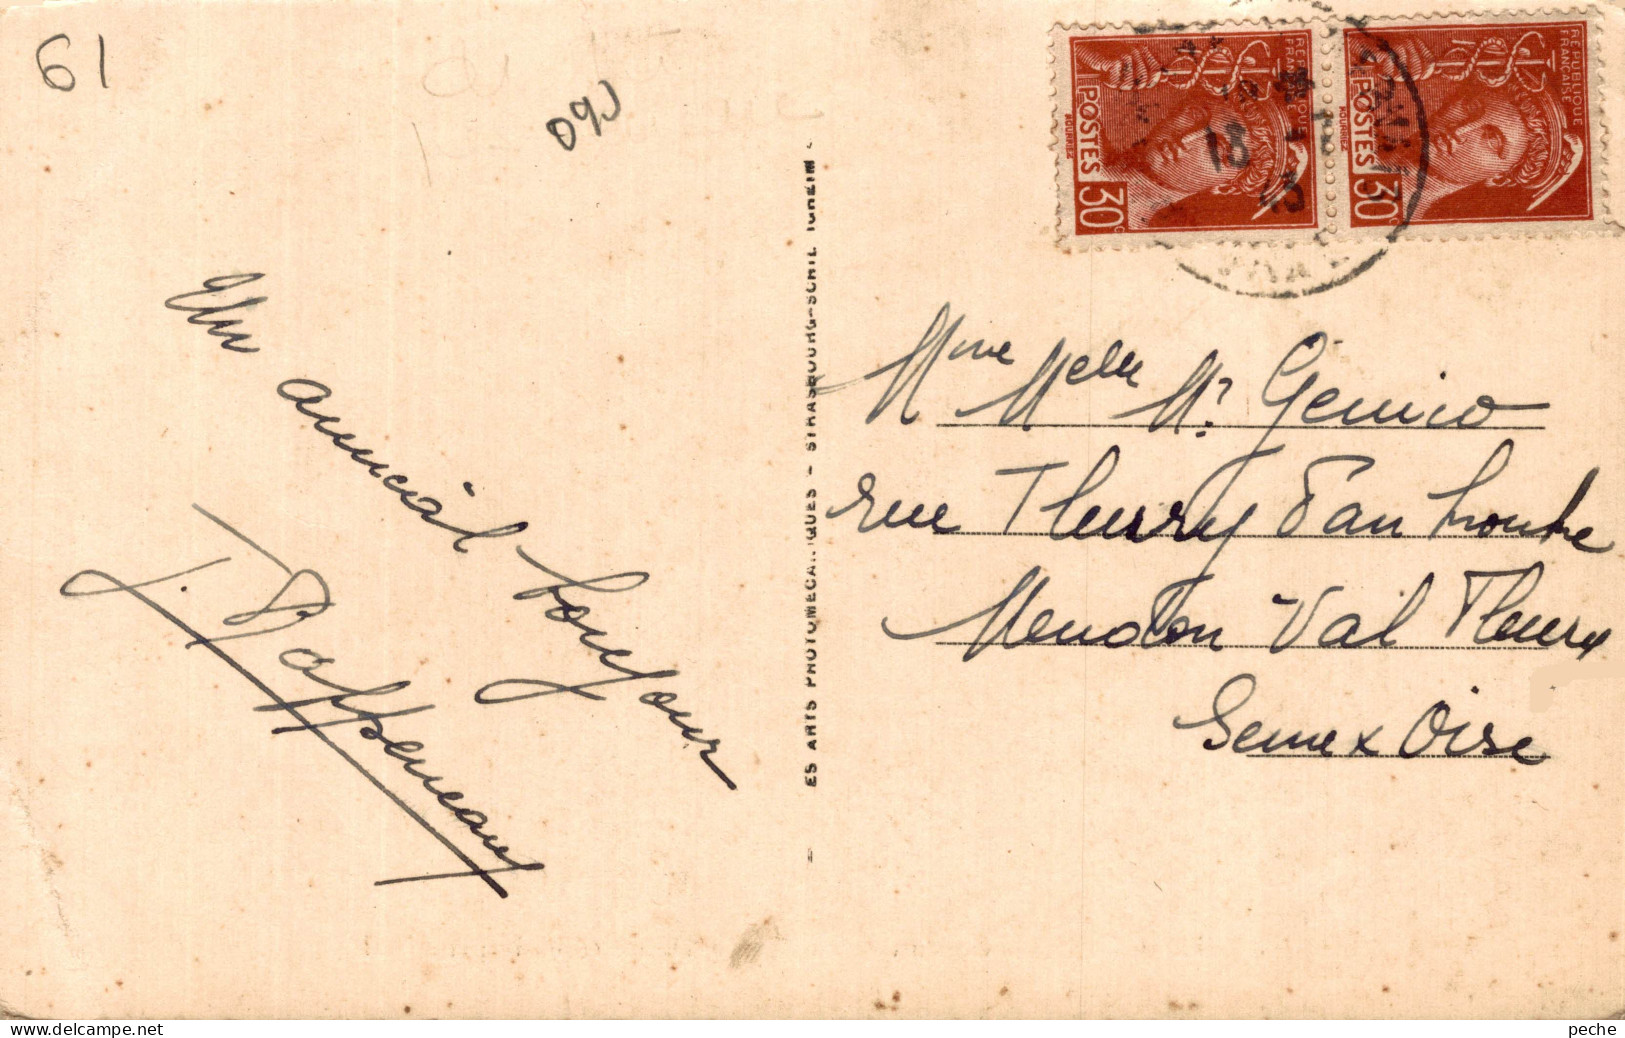 61
090
Un amical bonjour
ES ARTS PHOTOMECANIQUES - STRASBOURG-SCHILTIGHEIM -
RÉPUBLIQUE FRANÇAISE
POSTES 30c
MOURIEZ
RÉPUBLIQUE FRANÇAISE
POSTES 30c
MOURIEZ
18
Mme Melle Mr Gemico
rue Fleurry
Meudon Val Fleury
Seine & Oise
delcampe.net
peche